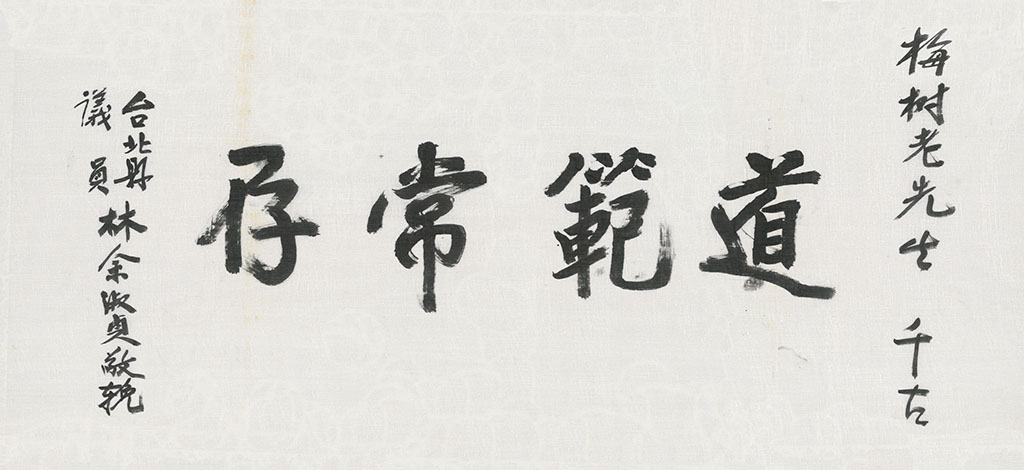 梅树老先生 千古
道範常存
台北縣議員 林余淑貞敬輓